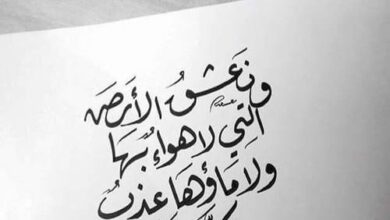 ونَعشقُ الأرضَ
التِي لا هواءٌ بهَا
ولا ماؤهَا عذبٌ